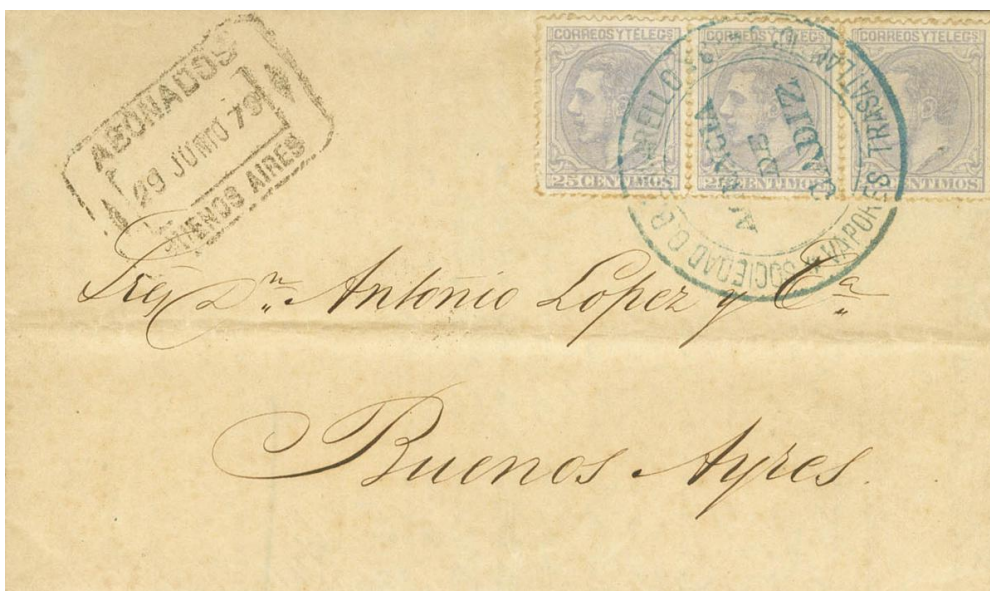 ABONADOS
29 JUNIO 79
BUENOS AIRES
CORREOS Y TELEGS
25 CENTIMOS
CORREOS Y TELEGS
25 CENTIMOS
CORREOS Y TELEGS
CENTIMOS
SOCIEDAD
VAPORES TRASATLAN
AGENCIA
DE
CADIZ
Sres Dn. Antonio Lopez y Ca
Buenos Ayres.